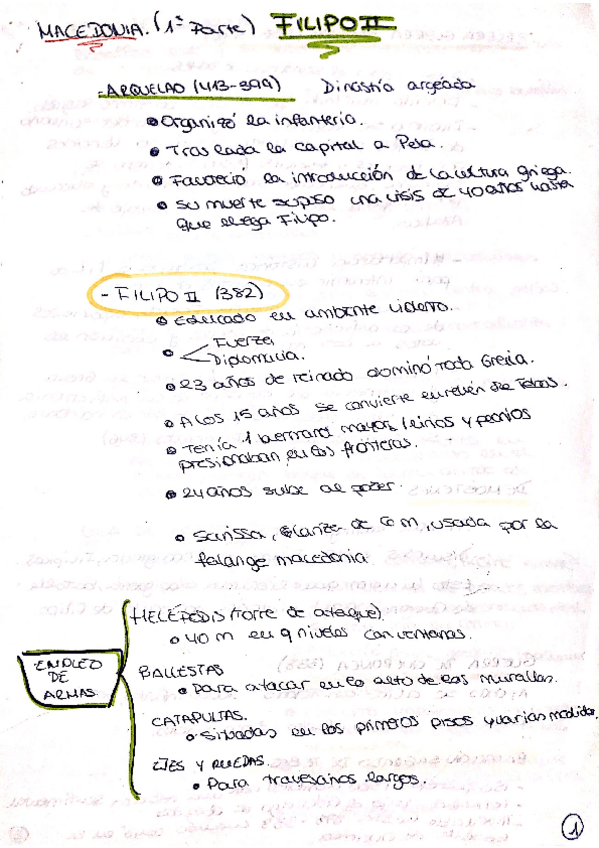 MACEDONIA. (1ª Parte) FILIPO II
- ARQUELAO (413-399) Dinastía argéada
• Organizó la infantería.
• Traslada la capital a Pela.
• Favoreció la introducción de la cultura griega.
• Su muerte supuso una crisis de 40 años hasta
que llega Filipo.
- FILIPO II (382)
• Educado en ambiente violento.
• Fuerza
Diplomacia.
• 23 años de reinado dominó toda Grecia.
• A los 15 años se convierte en rehén de Tebas.
• Tenía 1 hermano mayor, ilirios y peonios
presionaban en las fronteras.
• 24 años sube al poder.
• Sarissa, lanza de 6 m, usada por la
falange macedonia
HELÉPODIS (torre de ataque)
• 40 m en 9 niveles con ventanas.
EMPLEO
DE
ARMAS
BALLESTAS
• Para atacar en lo alto de las murallas.
CATAPULTAS.
• Situadas en los primeros pisos y varias medidas
EJES Y RUEDAS.
• Para travesaños largos.
1